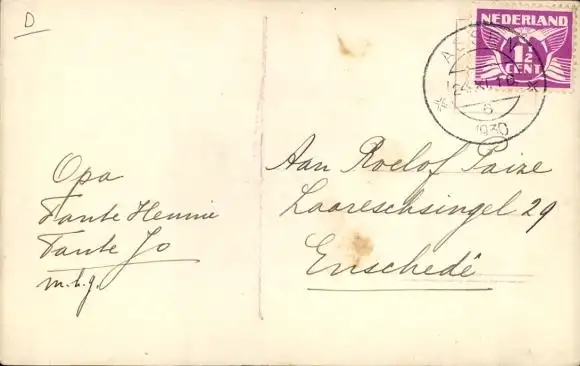 D
NEDERLAND
1½
CENT
1930
Opa
Tante Hennie
Tante Jo
m.h.g.
Aan Roelof Paize
Laaressingel 29
Enschedé